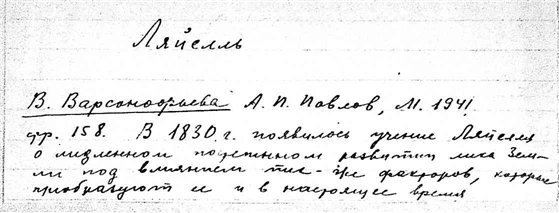 Ляйелль
В. Варсонофьева А. П. Павлов, М. 1941
стр. 158. В 1830 г. появилось учение Ляйелля
о медленном постепенном развитии лика Зем-
ли под влиянием тех-же факторов, которые
преобразуют ее и в настоящее время